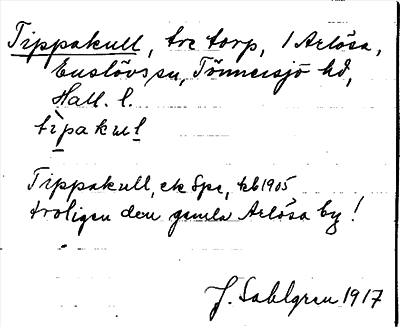 Tippakull, tre torp, / Arlösa,
Enslövs sn, Tönnersjö hd,
Hall. l.
tìpakul
Tippakull, ek Spe, kb 1905
troligen den gamla Arlösa by!
J. Sahlgren 1917